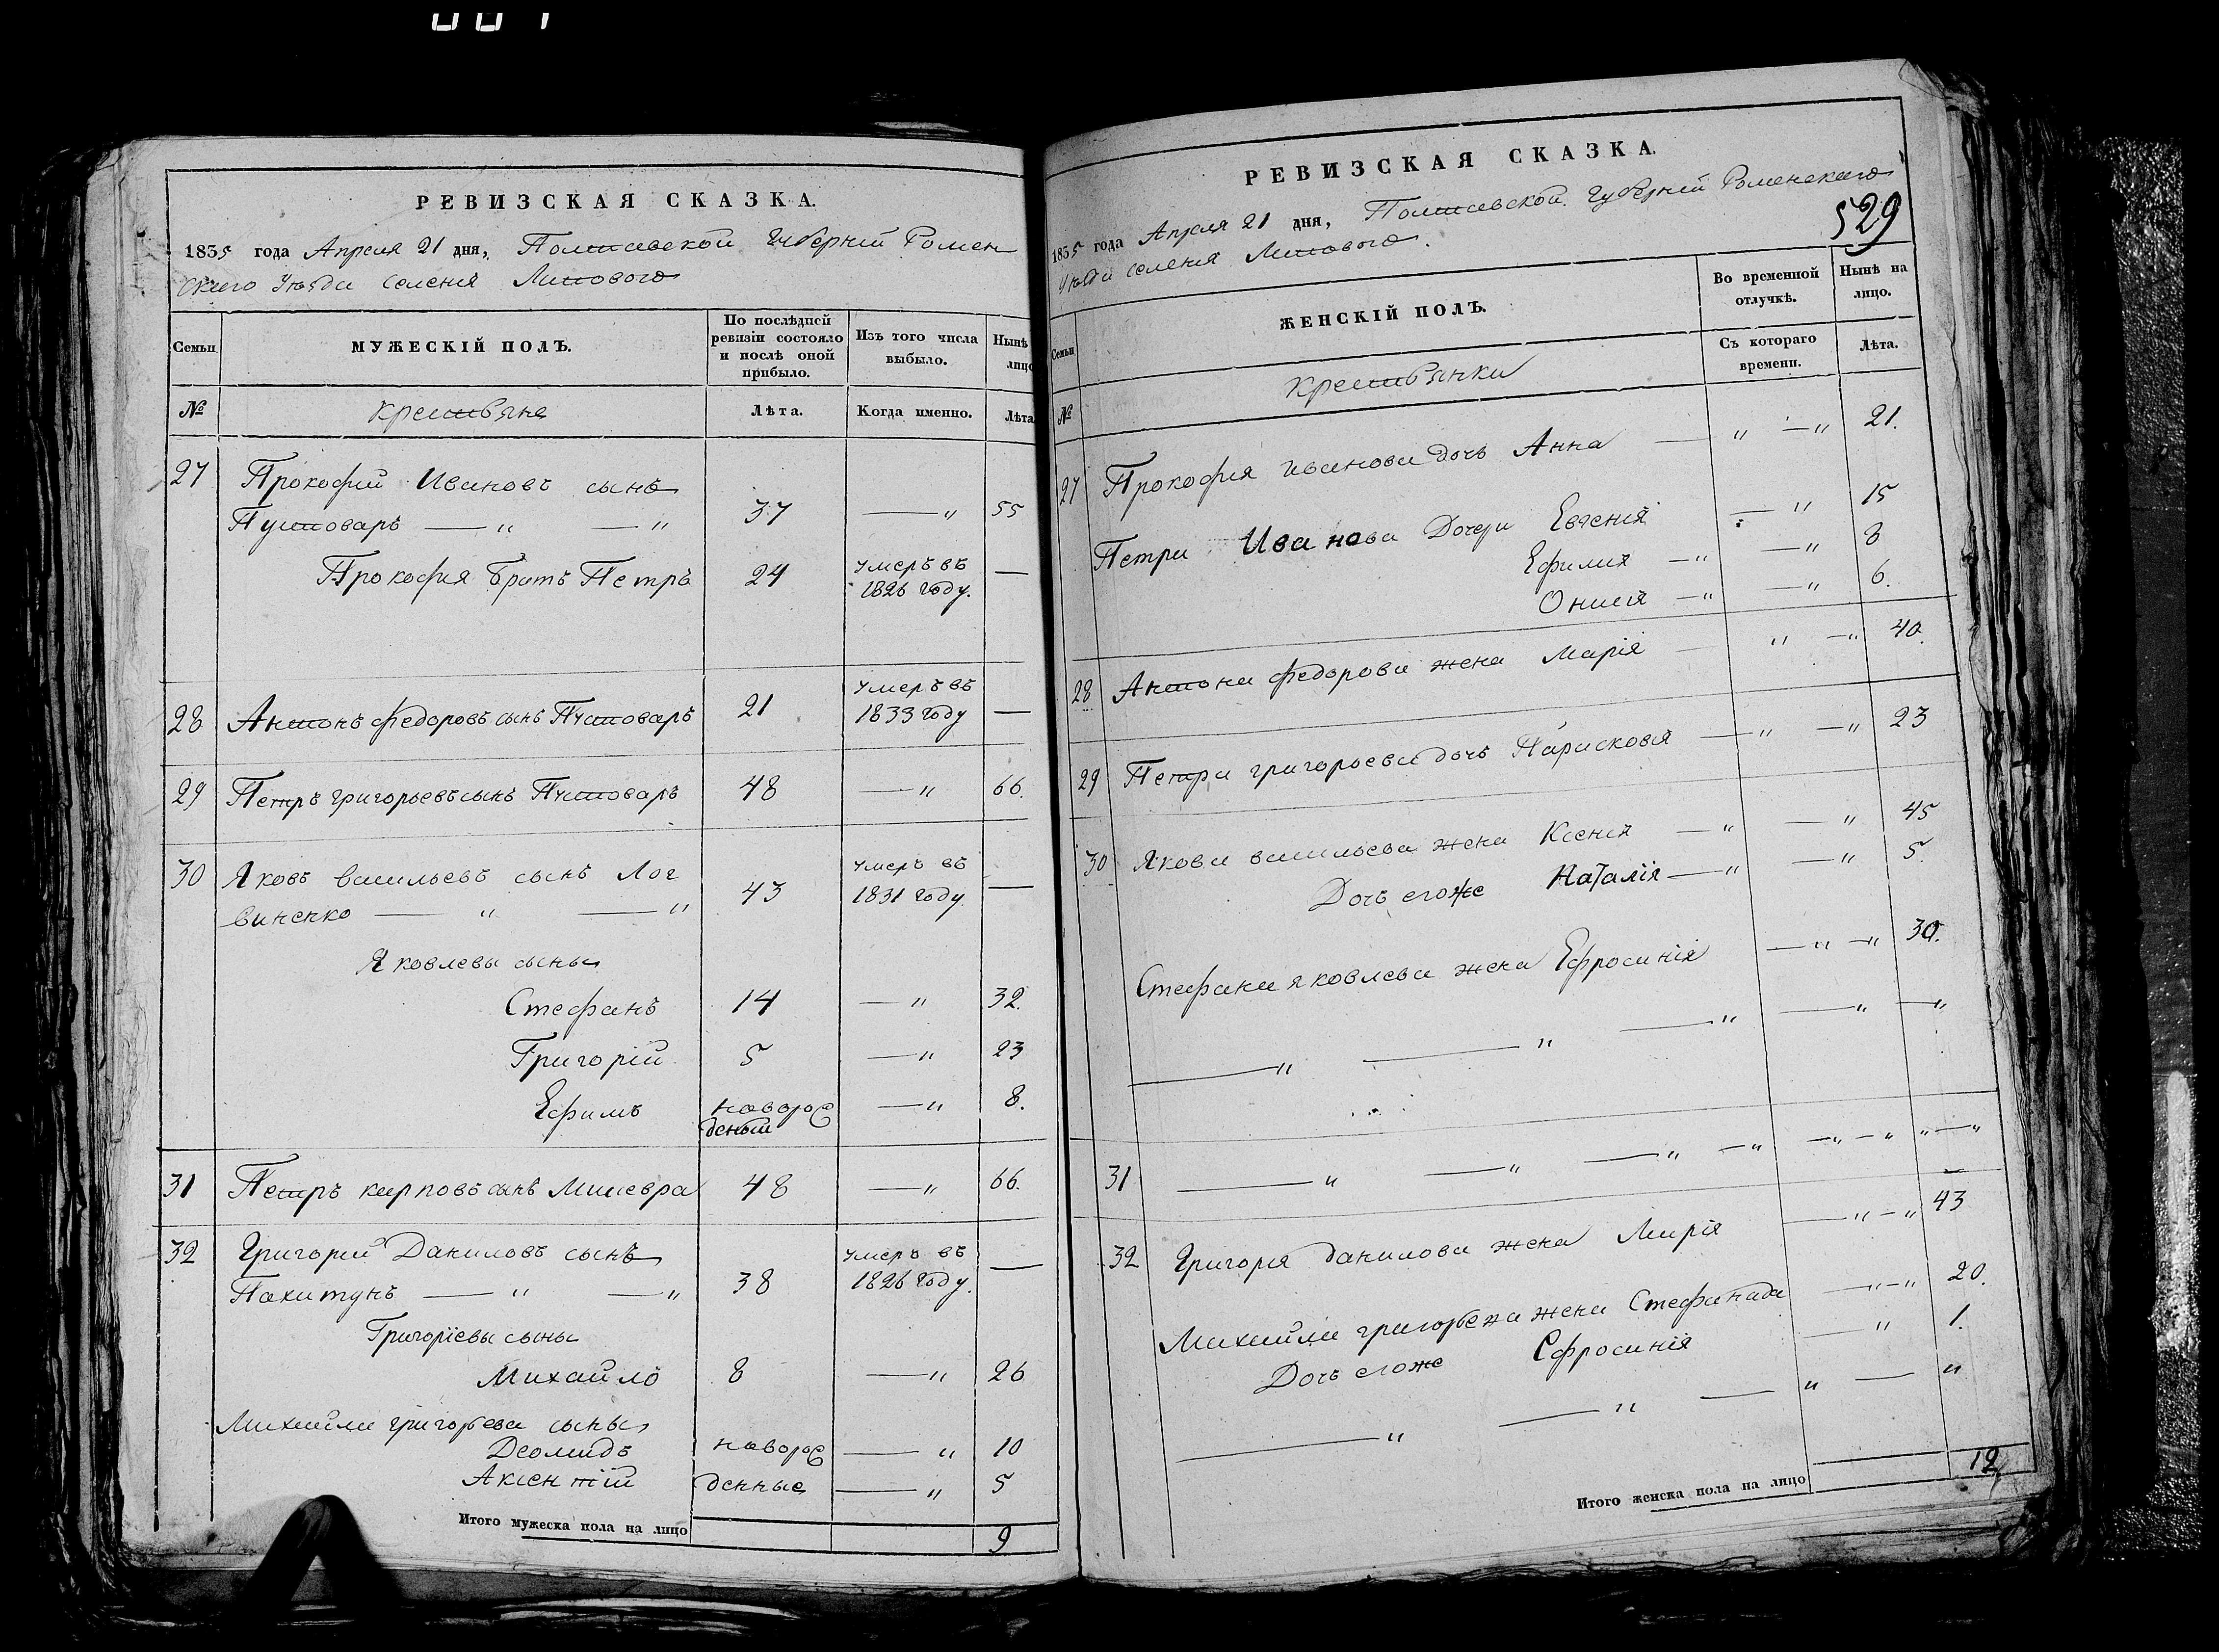 РЕВИЗСКАЯ СКАЗКА.
1835 года Апреля 21 дня, Полтавской Губерніи Ромен
скаго Уезда селенія Липового
Семьи МУЖЕСКІЙ ПОЛЪ. По послѣдней ревизіи состояло и послѣ оной прибыло. Изъ того числа выбыло. Нынѣ лицо
№ крестьяне Лѣта. Когда именно. Лѣта
27 Прокофий Ивановъ сынъ
Пустоваръ — „ — „ 37 — „ 55
Прокофія братъ Петръ 24 умеръ въ 1826 году. —
28 Антонъ Федоровъ сынъ Пустоваръ 21 умеръ въ 1833 году —
29 Петръ григорьевъ сынъ Пустоваръ 48 — „ 66.
30 Яковъ васильевъ сынъ Лог
виненко — „ — „ 43 умеръ въ 1831 году —
Яковлевы сыны
Стефанъ 14 — „ 32.
Григорій 5 — „ 23
Ефимъ новорож
деный — „ 8.
31 Петръ карповъ сынъ 48 — „ 66.
32 Григорий Даниловъ сынъ
Пахитунъ — „ — „ 38 умеръ въ 1826 году. —
Григоріевы сыны
Михайло 8 — „ 26
Михайла григорьева сыны
Деомидъ новорож — „ 10
Аксентій денные — „ 5
Итого мужеска пола на лицо 9
РЕВИЗСКАЯ СКАЗКА.
529
1835 года Апреля 21 дня, Полтавской Губерніи Роменскаго
Уезда селенія Липового.
Семьи ЖЕНСКІЙ ПОЛЪ. Во временной отлучкѣ. Нынѣ на лицо.
Съ котораго времени. Лѣта.
№ крестьянки
27 Прокофія иванова дочь Анна — „ — „ 21.
Петра Иванова Дочери Евгенія — „ 15
Ефимия — „ — „ 8
— „ — „ 6.
28 Антона федорова жена Марія — „ — „ 40.
29 Петра григорьева дочь Парасковія — „ — „ 23
30 Якова васильева жена Ксенія — „ — „ 45
Дочь егоже Наталія — „ — „ 5.
Стефана яковлева жена Ефросинія — „ — „ 30.
— „ — „ — „ — „ — „
31 — „ — „ — „ — „ — „ — „ „ — „
32 Григорія данилова жена Марія — „ — „ 43
Михайла григорьева жена Стефанида — „ — „ 20.
Дочь егоже Ефросинія — „ 1.
— „ — „ — „ — „
Итого женска пола на лицо 12